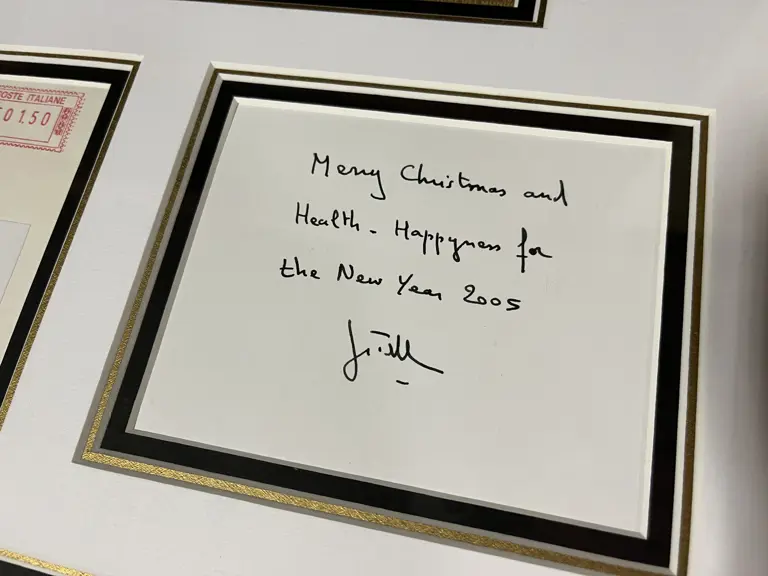 POSTE ITALIANE
0150
Merry Christmas and
Health - Happyness for
the New Year 2005